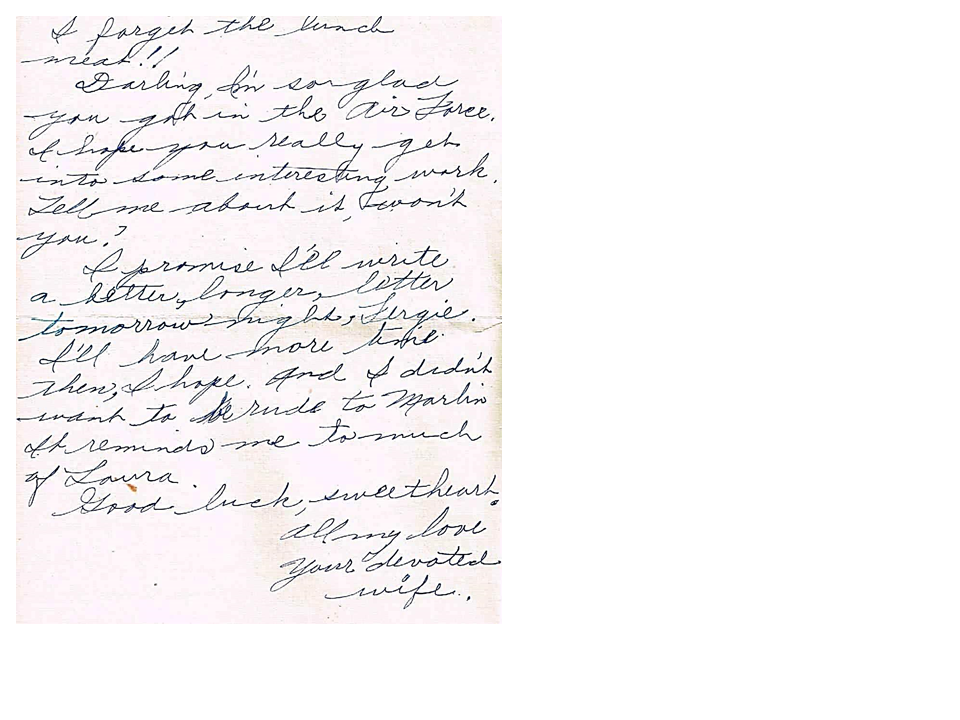 I forget the lunch
meat!!
Darling, I'm so glad
you got in the Air Force.
I hope you really get
into some interesting work.
Tell me about it, won't
you?
I promise I'll write
a better, longer, letter
tomorrow night, Fergie.
I'll have more time
then, I hope. And I didn't
want to be rude to Marlin
It reminds me to much
of Laura.
Good luck, sweetheart.
All my love
Your devoted
wife.